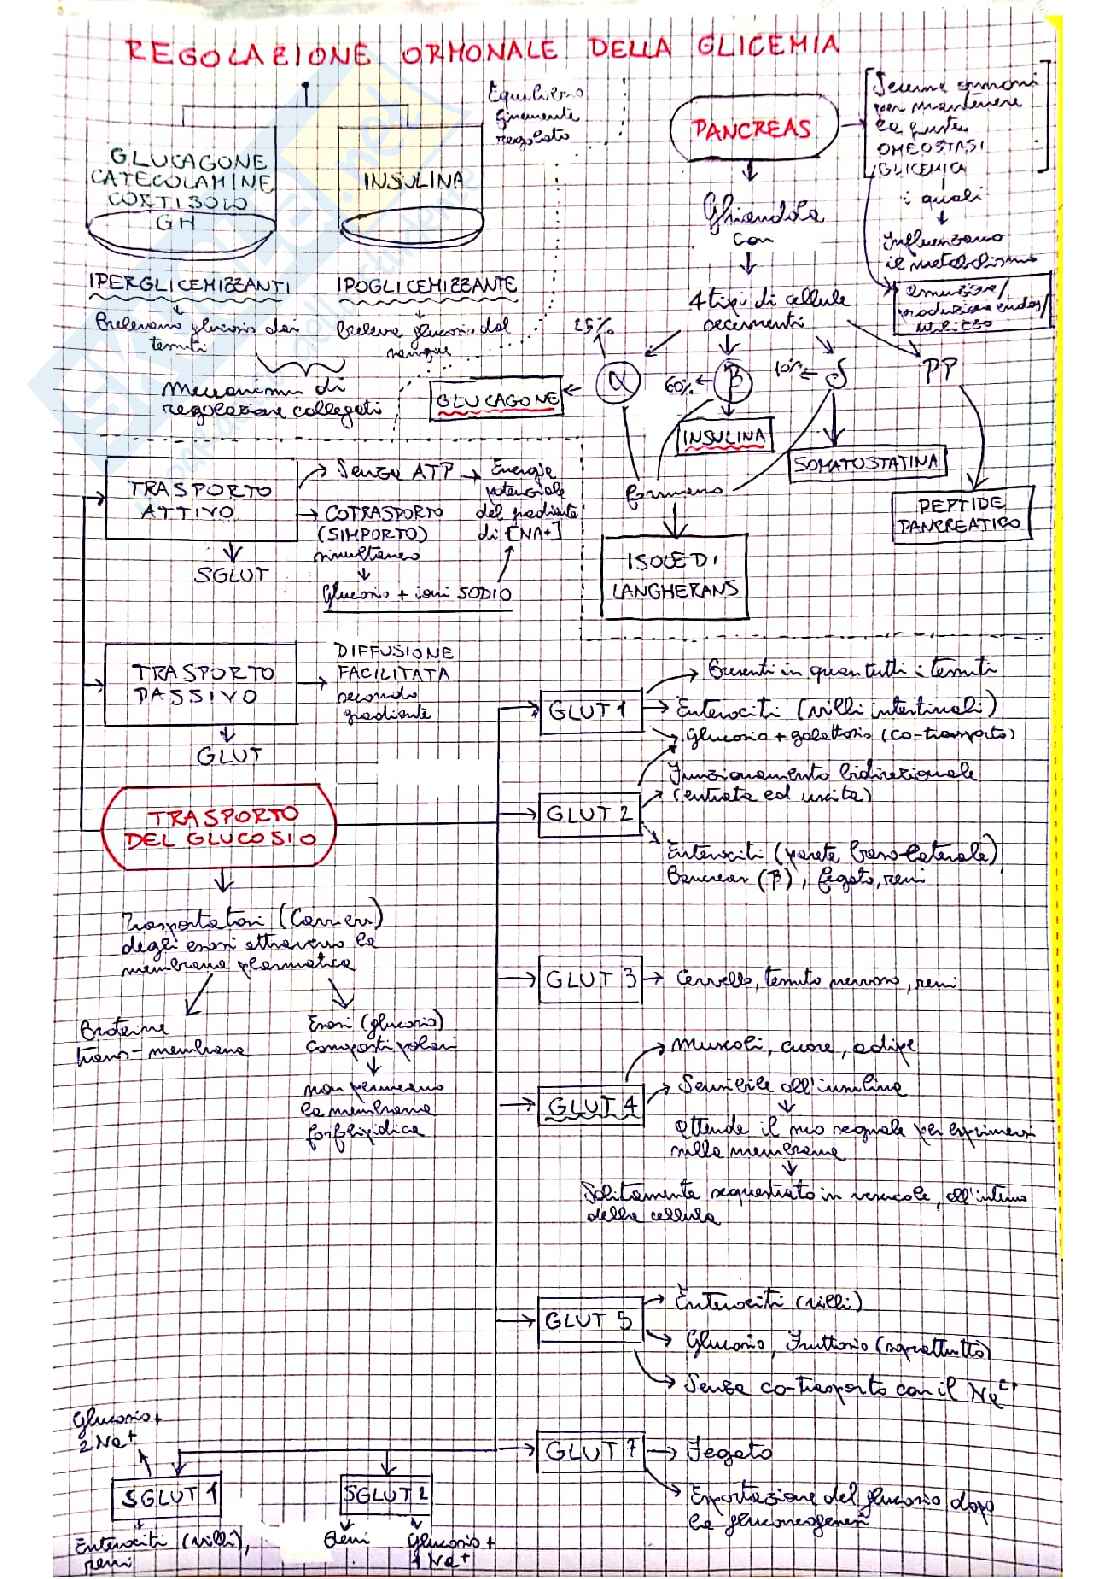 REGOLAZIONE ORMONALE DELLA GLICEMIA
GLUCAGONE
CATECOLAMINE
CORTISOLO
GH
INSULINA
Equilibrio
finemente
regolato
IPERGLICEMIZZANTI
IPOGLICEMIZZANTE
Prelevano glucosio dai
tessuti
Preleva glucosio dal
sangue
Meccanismi di
regolazione collegati
PANCREAS
Secerne ormoni
per mantenere
la giusta
OMEOSTASI
GLICEMICA
i quali
Influenzano
il metabolismo
Ghiandola
con
4 tipi di cellule
secernenti
25%
α
60%
β
10%
δ
PP
GLUCAGONE
INSULINA
SOMATOSTATINA
PEPTIDE
PANCREATICO
formano
ISOLE DI
LANGHERANS
TRASPORTO
ATTIVO
SGLUT
Senza ATP
Energia
potenziale
del gradiente
di [NA+]
COTRASPORTO
(SIMPORTO)
simultaneo
Glucosio + ioni SODIO
TRASPORTO
PASSIVO
GLUT
DIFFUSIONE
FACILITATA
secondo
gradiente
TRASPORTO
DEL GLUCOSIO
Trasportatori (Carrier)
degli esosi attraverso la
membrana plasmatica
Proteine
trans-membrana
Esosi (glucosio)
composti polari
non permeano
la membrana
fosfolipidica
GLUT 1
Presenti in quasi tutti i tessuti
Enterociti (villi intestinali)
Glucosio + galattosio (co-trasporto)
GLUT 2
Funzionamento bidirezionale
(entrata ed uscita)
Enterociti (parete baso-laterale)
Pancreas (β), fegato, reni
GLUT 3
Cervello, tessuto nervoso, reni
GLUT 4
Muscoli, cuore, adipe
Sensibile all'insulina
Attende il suo segnale per esprimersi
sulla membrana
Solitamente sequestrato in vescicole, all'interno
della cellula
GLUT 5
Enterociti (villi)
Glucosio, Fruttosio (soprattutto)
Senza co-trasporto con il Na+
GLUT 7
Fegato
Esportazione del glucosio dopo
la gluconeogenesi
Glucosio +
2 Na+
SGLUT 1
Enterociti (villi),
reni
SGLUT 2
Reni
Glucosio +
1 Na+